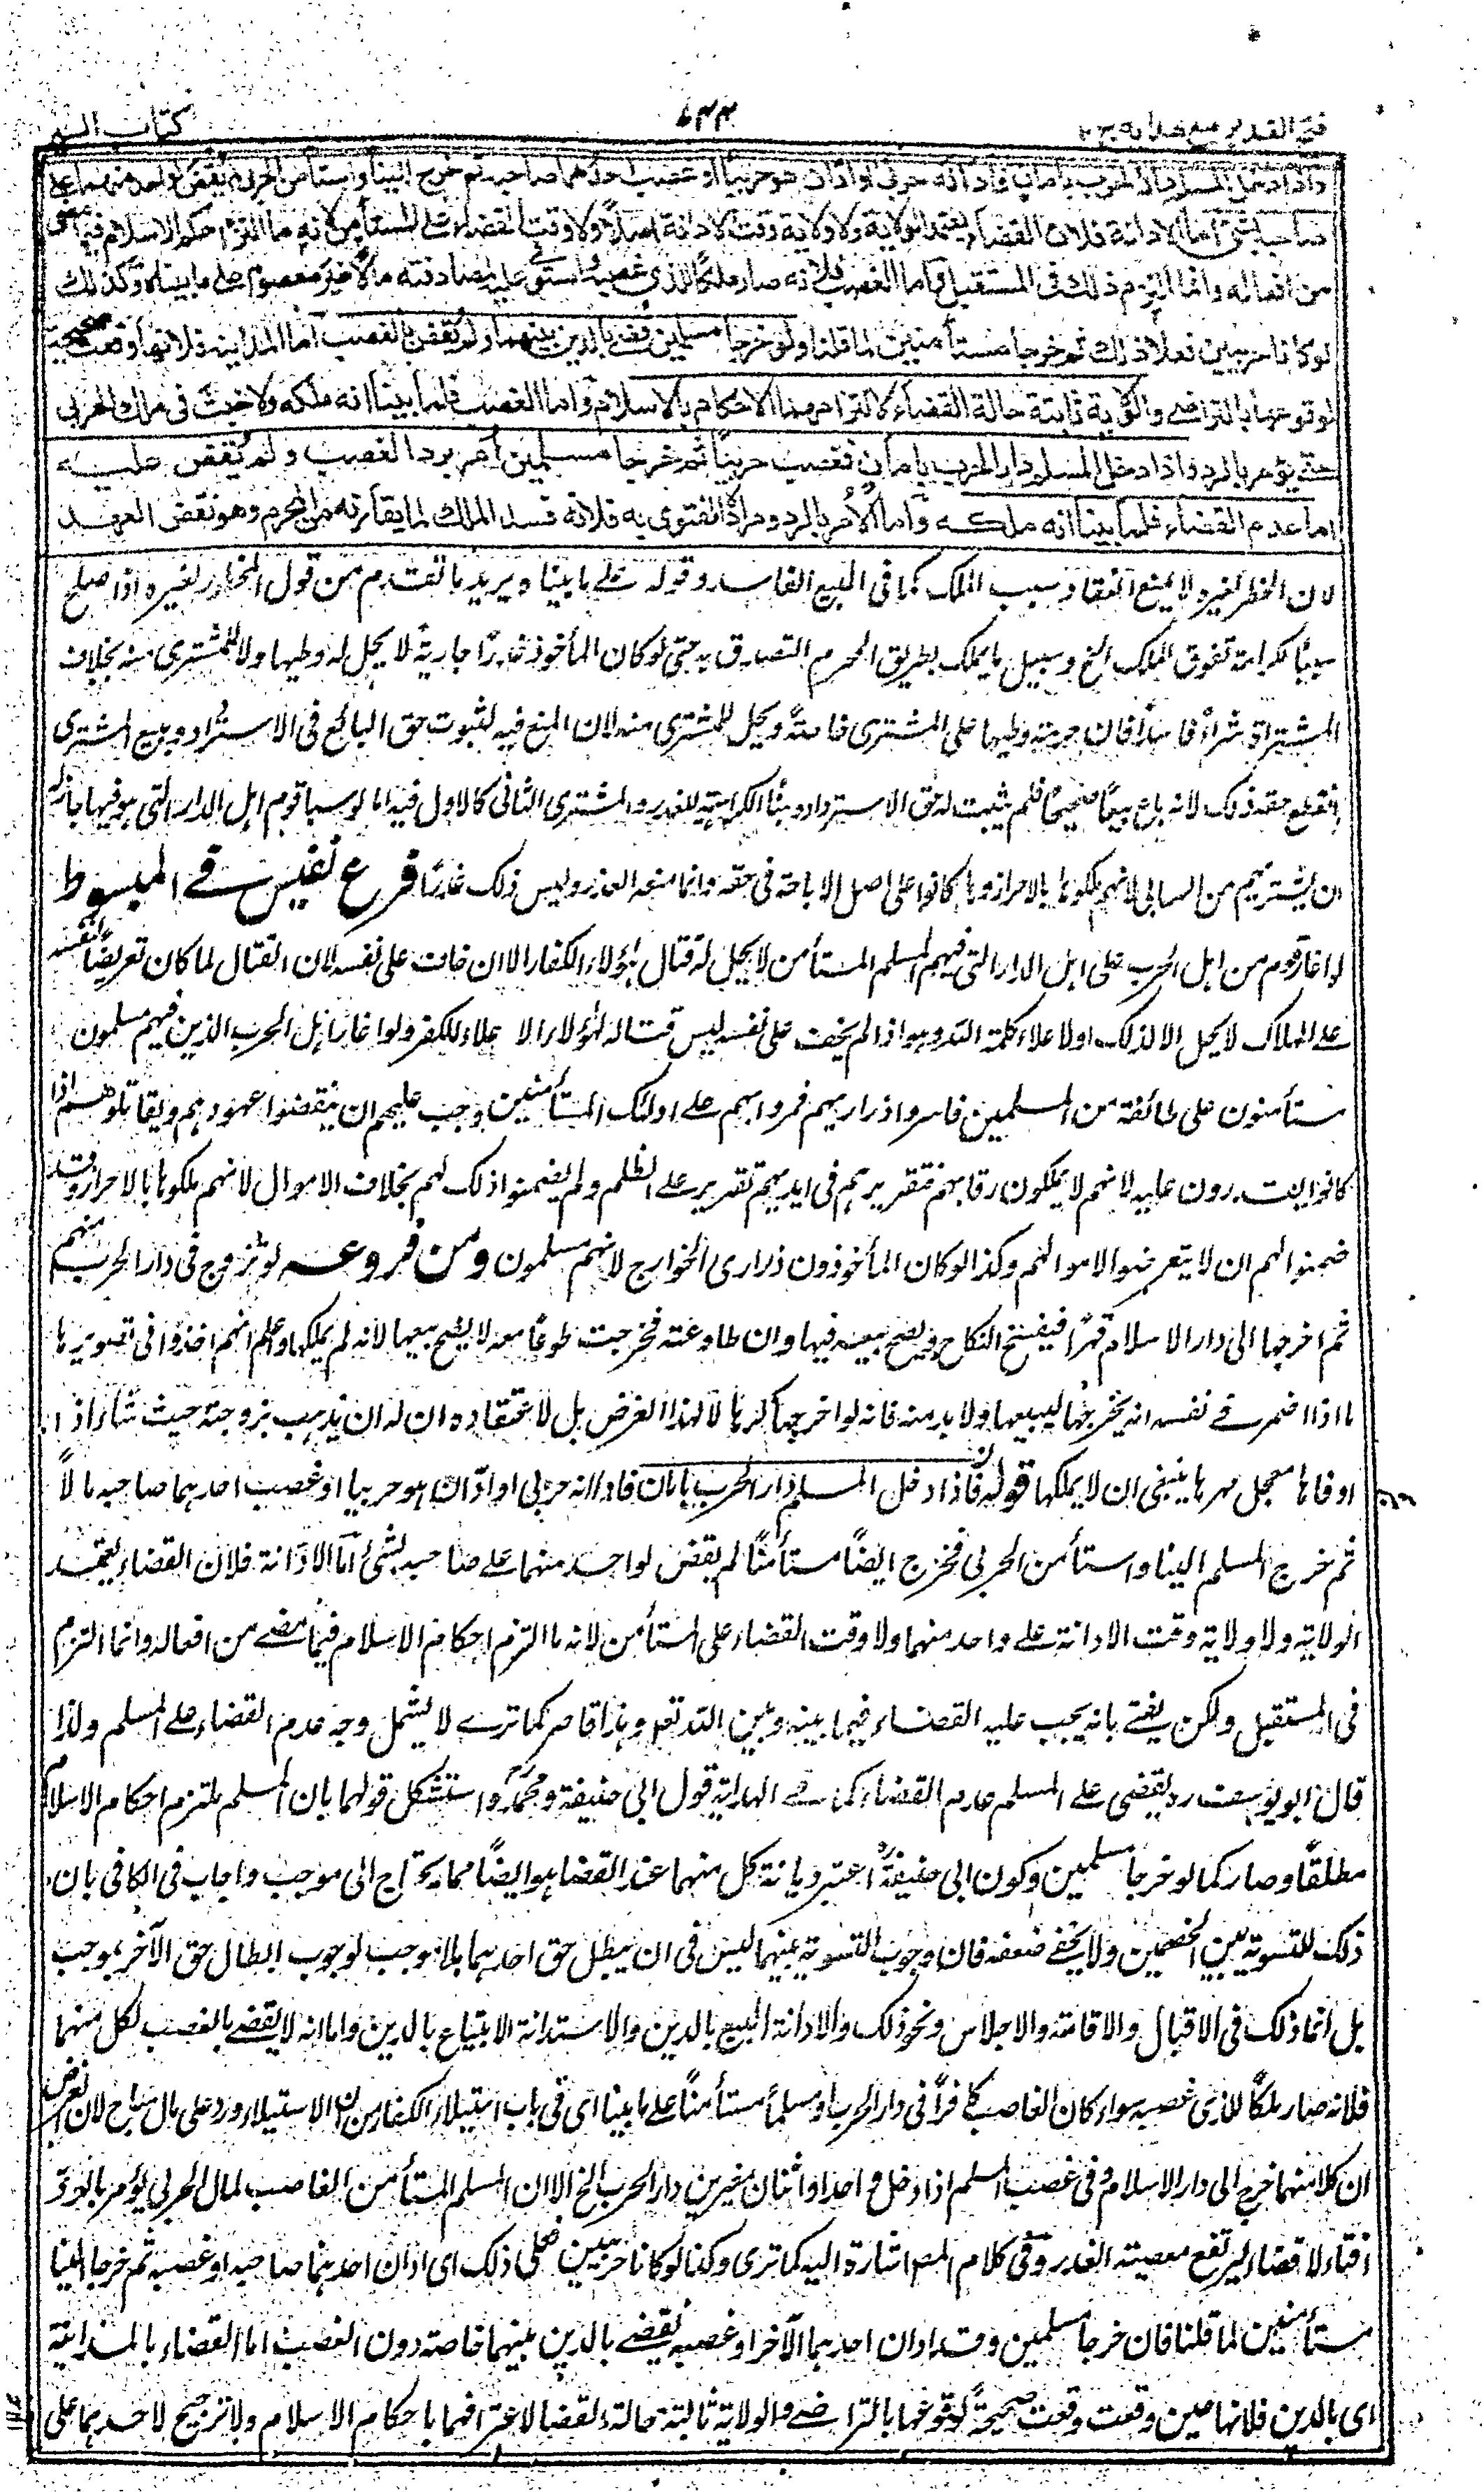 فتح القدير مع هداية ج ٢
٧٣٣
كتاب السير
واذا دخل المسلم دار الحرب بامان فادانه حربى او ادان هو حربيا او غصب احدهما صاحبه ثم خرج الينا واستأمن الحربى لم يقض لواحد منهما على
صاحبه بشئ اما الادانة فلان القضاء يعتمد الولاية ولا ولاية وقت الادانة اصلا ولا وقت القضاء على المستأمن لانه ما التزم حكم الاسلام فيما مضى
من افعاله وانما التزم ذلك فى المستقبل واما الغصب فلانه صار ملكا للذى غصبه واستولى عليه لمصادفته مالا غير معصوم على ما بيناه وكذلك
لو كانا حربيين فعلا ذلك ثم خرجا مستأمنين لما قلنا ولو خرجا مسلمين قضى بالدين بينهما ولم يقض بالغصب اما المداينة فلانها وقعت صحيحة
لوقوعها بالتراضى والولاية ثابتة حالة القضاء لالتزامهما الاحكام بالاسلام واما الغصب فلما بينا انه ملكه ولا خبث فى ملك الحربى
حتى يؤمر بالرد واذا دخل المسلم دار الحرب بامان فغصب حربيا ثم خرجا مسلمين امر برد الغصب ولم يقض عليه
اما عدم القضاء فلما بينا انه ملكه واما الامر بالرد ومراده الفتوى به فلانه فسد الملك لما يقارنه من المحرم وهو نقض العهد
لان الحظر لغيره لا يمنع انعقاد سبب الملك كما فى البيع الفاسد وقوله على ما بينا ه يريد ما تقدم من قول المحظور لغيره اذا صلح
سببا لكرامة تفوق الملك الخ وسبيل ما يملك بطريق المحرم التصدق به حتى لو كان المأخوذ غدرا جارية لا يحل له وطيها ولا للمشترى منه بخلاف
المشتراة شراء فاسدا فان حرمة وطيها على المشترى خاصة ويحل للمشترى منه لان المنع فيه لثبوت حق البائع فى الاسترداد وببيع المشترى
انقطع حقه ذلك لانه باع بيعا صحيحا فلم يثبت له حق الاسترداد وهنا الكراهة للغدر والمشترى الثانى كالاول فيه اما لو سبا قوم اهل الدار التى هو فيها جاز له
ان يشتريهم من السابى لانهم ملكوها بالاحراز وما كانوا على اصل الاباحة فى حقه وانما منعه الغدر وليس ذلك غدرا فرع نفيس فى المبسوط
لو اغار قوم من اهل الحرب على اهل الدار التى فيهم المسلم المستأمن لا يحل له قتال هؤلاء الكفار الا ان خاف على نفسه لان القتال لما كان تعريضا لنفسه
على الهلاك لا يحل الا لذلك او لاعلاء كلمة الله وهو اذا لم يخف على نفسه ليس قتاله لهؤلاء الا اعلاء للكفر ولو اغار اهل الحرب الذين فيهم مسلمون
مستأمنون على طائفة من المسلمين فاسروا ذراريهم فمروا بهم على اولئك المستأمنين وجب عليهم ان ينقضوا عهودهم ويقاتلوهم اذا
كانوا يقدرون عليه لانهم لا يملكون رقابهم فتقريرهم فى ايديهم تقرير على الظلم ولم يضمنوا ذلك لهم بخلاف الاموال لانهم ملكوها بالاحراز وقد
ضمنوا لهم ان لا يتعرضوا لاموالهم وكذا لو كان المأخوذون ذرارى الخوارج لانهم مسلمون ومن فروعه لو تزوج فى دار الحرب منهم
ثم اخرجها الى دار الاسلام قهرا فينفسخ النكاح ويصح بيعه فيها وان طاوعته فخرجت طوعا معه لا يصح بيعها لانه لم يملكها واعلم انهم اخذوا فى تصويرها
ما اذا اضمر فى نفسه انه يخرجها ليبيعها ولا بد منه فانه لو اخرجها كرها لا لهذا الغرض بل لاعتقاده ان له ان يذهب بزوجته حيث شاء اذا
اوفاها معجل مهرها ينبغى ان لا يملكها قوله فاذا دخل المسلم دار الحرب بامان فادانه حربى او ادان هو حربيا او غصب احدهما صاحبه مالا
ثم خرج المسلم الينا واستأمن الحربى فخرج ايضا مستأمنا لم يقض لواحد منهما على صاحبه بشئ اما الادانة فلان القضاء يعتمد
الولاية ولا ولاية وقت الادانة على واحد منهما ولا وقت القضاء على المستأمن لانه ما التزم احكام الاسلام فيما مضى من افعاله وانما التزم
فى المستقبل ولكن يفتى بانه يجب عليه القضاء فيما بينه وبين الله تعالى وهذا قاصر كما ترى لا يشمل وجه عدم القضاء على المسلم ولذا
قال ابو يوسف رح يقضى على المسلم وعدم القضاء كما فى الهداية قول ابى حنيفة ومحمد رح واستشكل قولهما بان المسلم ملتزم احكام الاسلام
مطلقا وصار كما لو خرجا مسلمين وكون ابى حنيفة رح اعتبر ديانة كل منهما عند القضاء هو ايضا مما يحتاج الى موجب واجاب فى الكافى بان
ذلك للتسوية بين الخصمين ولا يخفى ضعفه فان وجوب التسوية بينهما ليس فى ان يبطل حق احدهما بلا موجب لوجوب ابطال حق الآخر بموجب
بل انما ذلك فى الاقبال والاقامة والاجلاس ونحو ذلك والادانة البيع بالدين والاستدانة الابتياع بالدين واما انه لا يقضى بالغصب لكل منهما
فلانه صار ملكا للذى غصبه سواء كان الغاصب كافرا فى دار الحرب او مسلما مستأمنا على ما بينا اى فى باب استيلاء الكفار من ان الاستيلاء ورد على مال مباح لان الفرض
ان كلا منهما خرج الى دار الاسلام وفى غصب المسلم اذا دخل واحد او اثنان مغيرين دار الحرب الخ الا ان المسلم المستأمن الغاصب لمال الحربى يؤمر بالرد
افتاء لا قضاء ليرتفع معصية الغدر وفى كلام المص اشارة اليه كما ترى وكذا لو كانا حربيين فعلى ذلك اى ادان احدهما صاحبه او غصبه ثم خرجا الينا
مستأمنين لما قلنا فان خرجا مسلمين وقد ادان احدهما الآخر او غصبه يقضى بالدين بينهما خاصة دون الغصب اما القضاء بالمداينة
اى بالدين فلانها حين وقعت وقعت صحيحة لوقوعها بالتراضى والولاية ثابتة حالة القضاء لاعترافهما باحكام الاسلام ولا ترجيح لاحدهما على